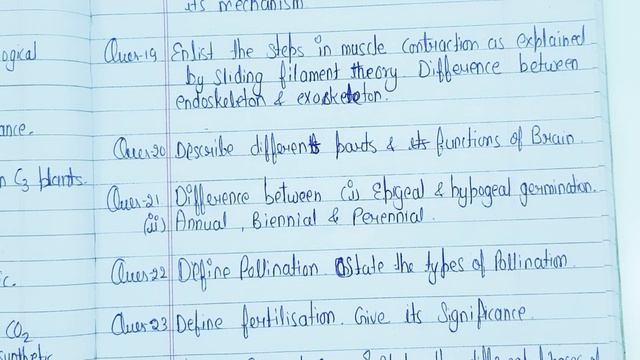 its mechanism
ogical
Ques-19 Enlist the steps in muscle contraction as explained
by sliding filament theory. Difference between
endoskeleton & exoskeleton.
ance.
Ques-20 Describe different parts & its functions of Brain.
n C3 plants.
Ques-21 Difference between (i) Epigeal & hypogeal germination.
(ii) Annual, Biennial & Perennial.
Ques-22 Define Pollination. State the types of Pollination.
ic.
Ques-23 Define fertilisation. Give its Significance.
CO2
synthetic